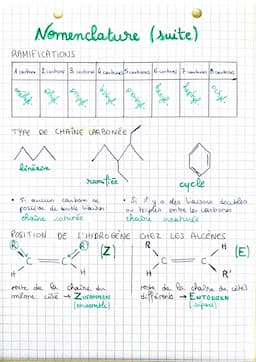 Nomenclature (suite)
RAMIFICATIONS
1 carbone 2 carbone 3 carbone 4 carbones 5 carbones 6 carbones 7 carbones 8 carbones
TYPE DE CHAÎNE CARBONÉE
linéaire
ramifiée
cycle
• Si aucun carbone ne possède de double liaison
chaîne saturée
• Si il y a des liaisons doubles ou triples entre les carbones
chaîne insaturée
POSITION DE L'HYDROGÈNE CHEZ LES ALCÈNES
R R' (Z)
C = C
H H
R H (E)
C = C
H R'
reste de la chaîne du même côté → ZUSAMMEN
(ensemble)
reste de la chaîne de côtés différents → ENTGEGEN
(séparé)